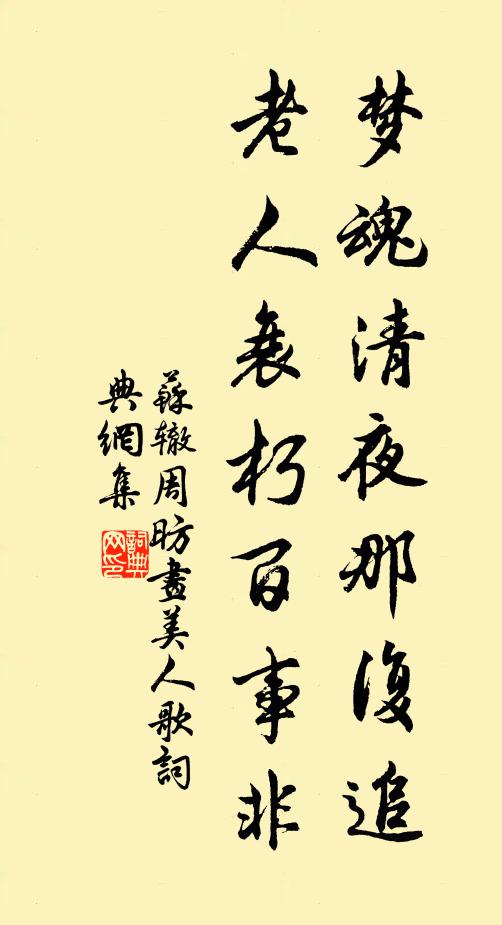 梦魂清夜那復追
老人衰朽百事非
蘇辙周昉畫美人歌詞
典網集
詞典网印